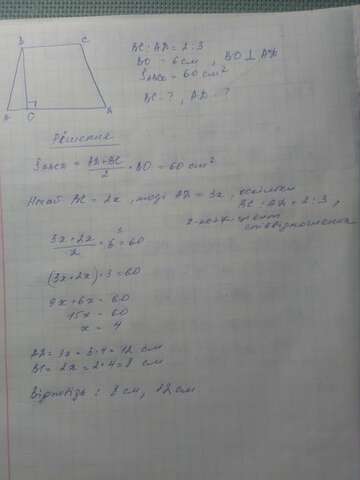 B C
A O A
BC : AD = 2 : 3
BO = 6 см , BO ⊥ AD
S = 60 см²
BC - ? , AD - ?
Рішення
S = AD+BC/2 · BO = 60 см²
Нехай BC = 2x , тоді AD = 3x , оскільки
BC : AD = 2 : 3 ,
x - коефіцієнт
3x + 2x/2 · 6 = 60
(3x+2x) · 3 = 60
9x + 6x = 60
15x = 60
x = 4
AD = 3x = 3·4 = 12 см
BC = 2x = 2·4 = 8 см
Відповідь : 8 см, 12 см